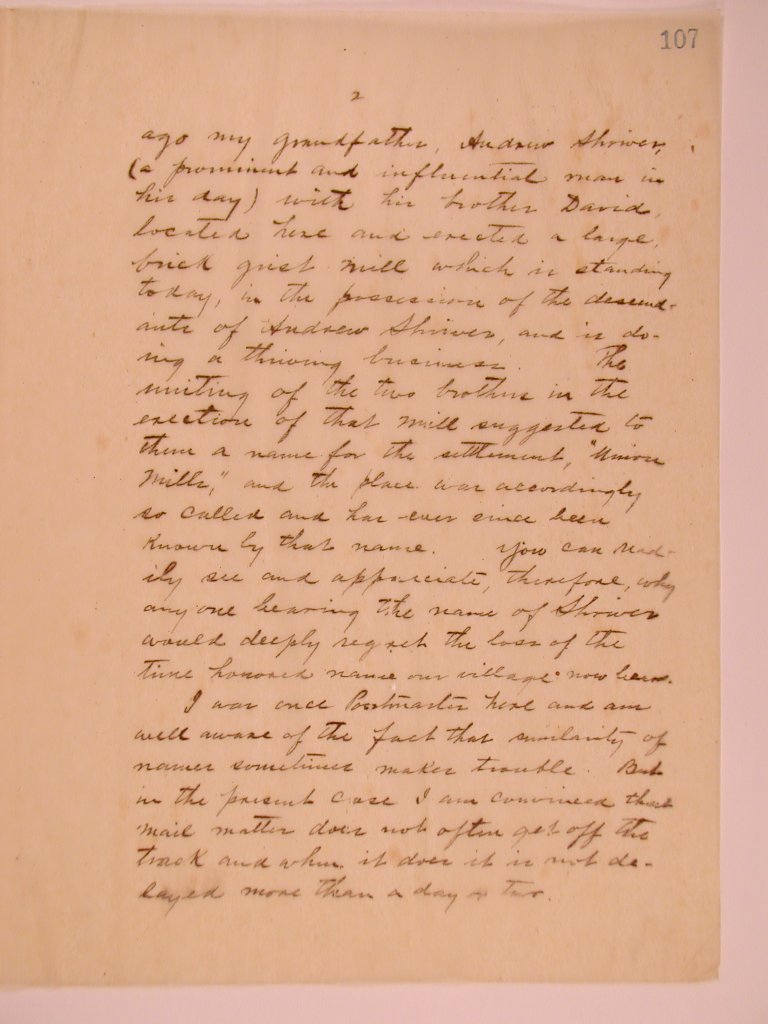 107
2
ago my grandfather, Andrew Shriver,
(a prominent and influential man in
his day) with his brother David,
located here and erected a large,
brick grist mill which is standing
today, in the possession of the descend-
ants of Andrew Shriver, and is do-
ing a thriving business. The
uniting of the two brothers in the
erection of that mill suggested to
them a name for the settlement, "Union
Mills," and the place was accordingly
so called and has ever since been
known by that name. You can read-
ily see and appreciate, therefore, why
any one bearing the name of Shriver
would deeply regret the loss of the
time honored name our village now bears.
I was once Postmaster here and am
well aware of the fact that similarity of
names sometimes makes trouble. But
in the present case I am convinced that
mail matter does not often get off the
track and when it does it is not de-
layed more than a day or two.